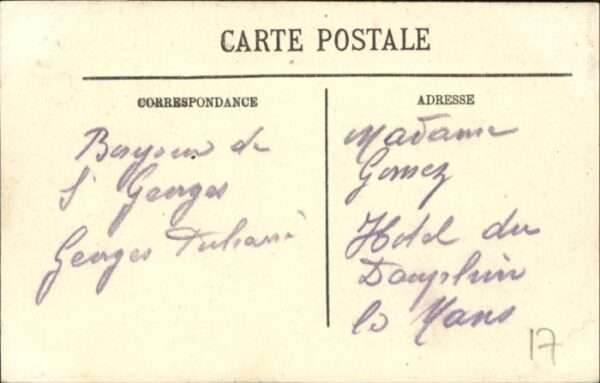 CARTE POSTALE
CORRESPONDANCE
Bonjour de
St Georges
Georges
ADRESSE
Madame
Gomez
Hotel du
Dauphin
le Mans
17